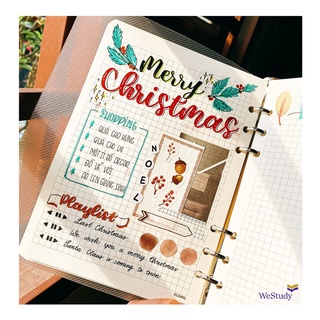 Merry
Christmas
SHOPPING
QUÀ CHO HƯNG
QUÀ CHO VI
MỘT ÍT ĐỒ DECOR
ĐỒ VẼ VỜI
ÁO LEN GIÁNG SINH
NOEL
Playlist
Last Christmas
We wish you a merry Christmas
Santa Claus is coming to town
WeStudy